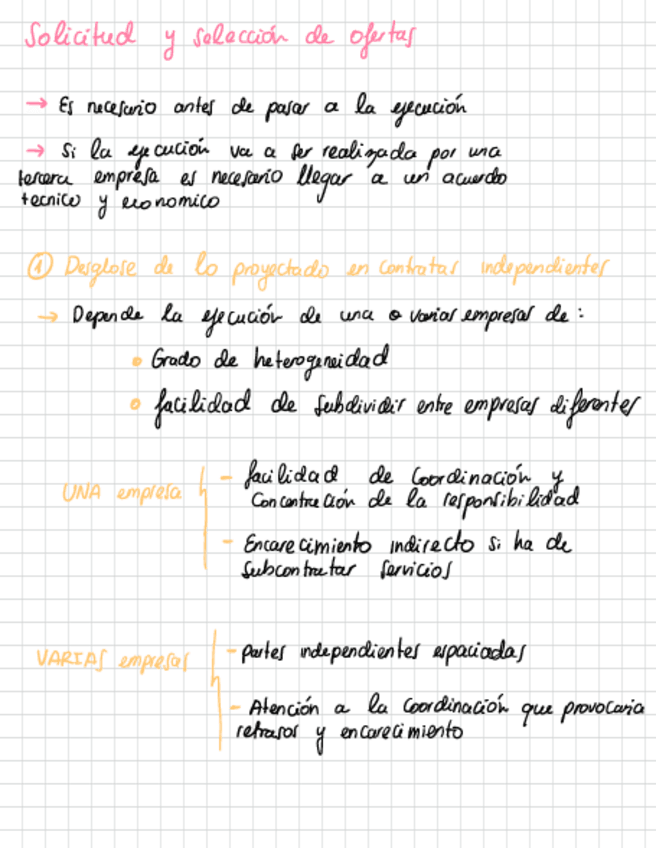 Solicitud y selección de ofertas
→ Es necesario antes de pasar a la ejecución
→ Si la ejecución va a ser realizada por una
tercera empresa es necesario llegar a un acuerdo
tecnico y economico
① Desglose de lo proyectado en contratas independientes
→ Depende la ejecución de una o varias empresas de :
• Grado de heterogeneidad
• facilidad de subdividir entre empresas diferentes
UNA empresa
- facilidad de Coordinación y
Concentración de la responsibilidad
- Encarecimiento indirecto si ha de
subcontratar servicios
VARIAS empresas
- partes independientes espaciadas
- Atención a la coordinación que provocaria
retrasos y encarecimiento